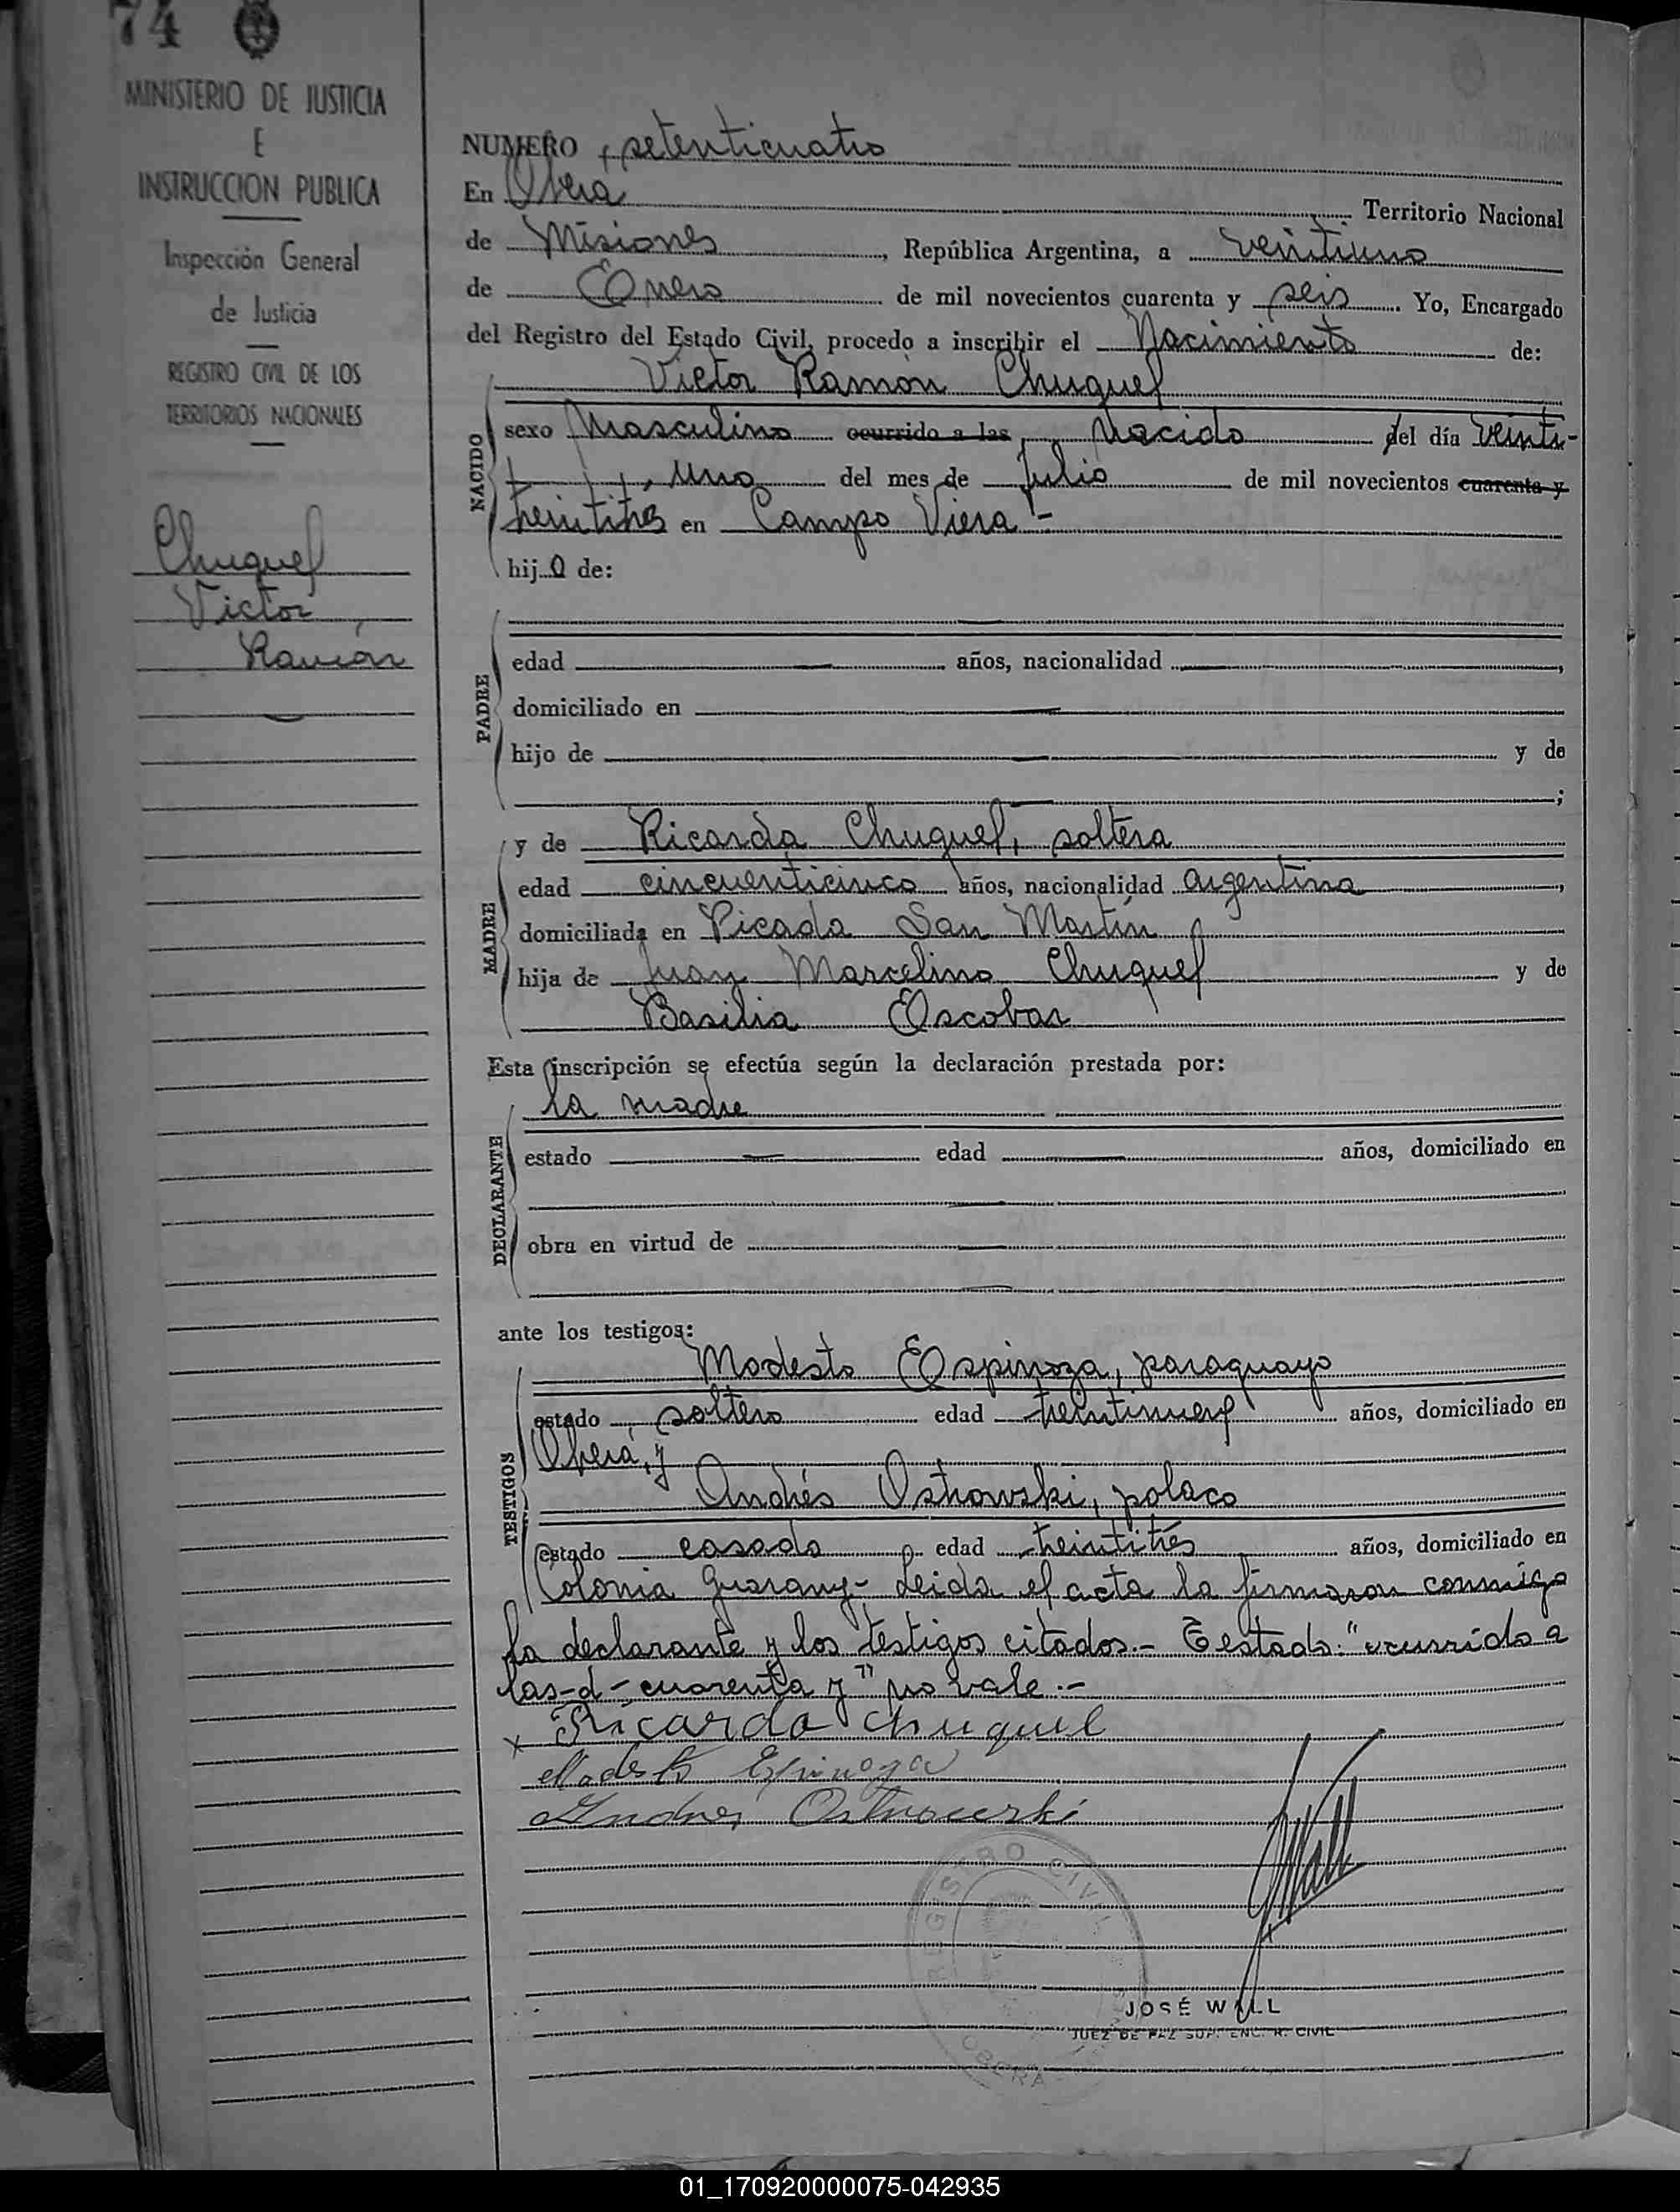 74
MINISTERIO DE JUSTICIA
E
INSTRUCCION PUBLICA
Inspección General
de Justicia
REGISTRO CIVIL DE LOS
TERRITORIOS NACIONALES
Chuquel
Victor
Ramón
NUMERO setenticuatro
En Oberá Territorio Nacional
de Misiones, República Argentina, a veintiuno
de Enero de mil novecientos cuarenta y seis. Yo, Encargado
del Registro del Estado Civil, procedo a inscribir el Nacimiento de:
Victor Ramón Chuquel
NACIDO
sexo Masculino ocurrido a las nacido del día veinti-
uno del mes de Julio de mil novecientos cuarenta y
treintitres en Campo Viera.-
hijo de:
PADRE
edad años, nacionalidad
domiciliado en
hijo de y de
;
MADRE
y de Ricarda Chuquel, soltera
edad cincuenticinco años, nacionalidad argentina,
domiciliada en Picada San Martín
hija de Juan Marcelino Chuquel y de
Basilia Escobar
Esta inscripción se efectúa según la declaración prestada por:
DECLARANTE
la madre
estado edad años, domiciliado en
obra en virtud de
ante los testigos:
TESTIGOS
Modesto Espinoza, paraguayo
estado soltero edad treintinueve años, domiciliado en
Oberá, y
Andrés Ostrowski, polaco
estado casado edad treintitrés años, domiciliado en
Colonia Guarany.- Leida el acta la firmaron conmigo
la declarante y los testigos citados.- Testado: "ocurrido a
las-d-cuarenta y" no vale.-
x Ricarda chuquel
Modesto Espinoza
Andres Ostrowski
REGISTRO CIVIL
OBERA
JOSÉ WALL
JUEZ DE PAZ SUP. ENC. R. CIVIL
01_170920000075-042935